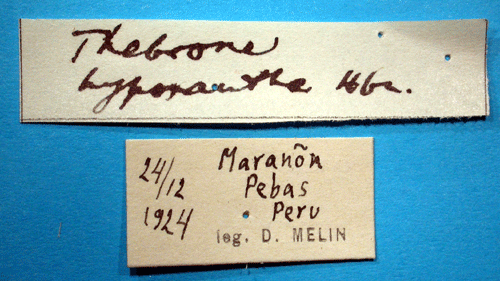 Thebrone
hypoxantha Hbn.
24/12
1924
Marañõn
Pebas
Peru
leg. D. MELIN